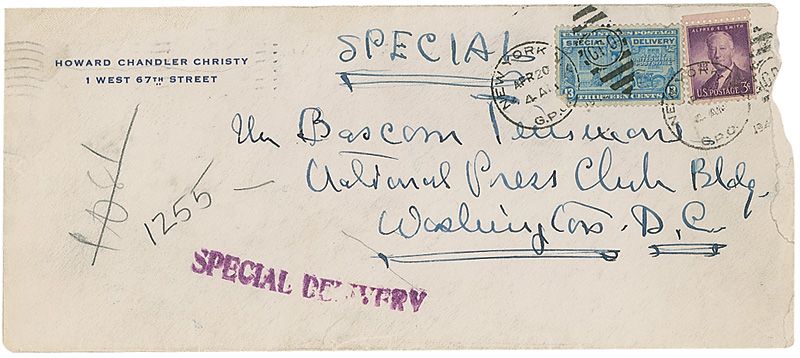 HOWARD CHANDLER CHRISTY
1 WEST 67TH STREET
SPECIAL
SPECIAL DELIVERY
THIRTEEN CENTS
13
ALFRED E. SMITH
U.S. POSTAGE 3¢
NEW YORK
APR 20
4 AM
G.P.O.
NEW YORK
G.P.O.
Bascom
National Press Club Bldg.
Washington D.C.
1255
SPECIAL DELIVERY